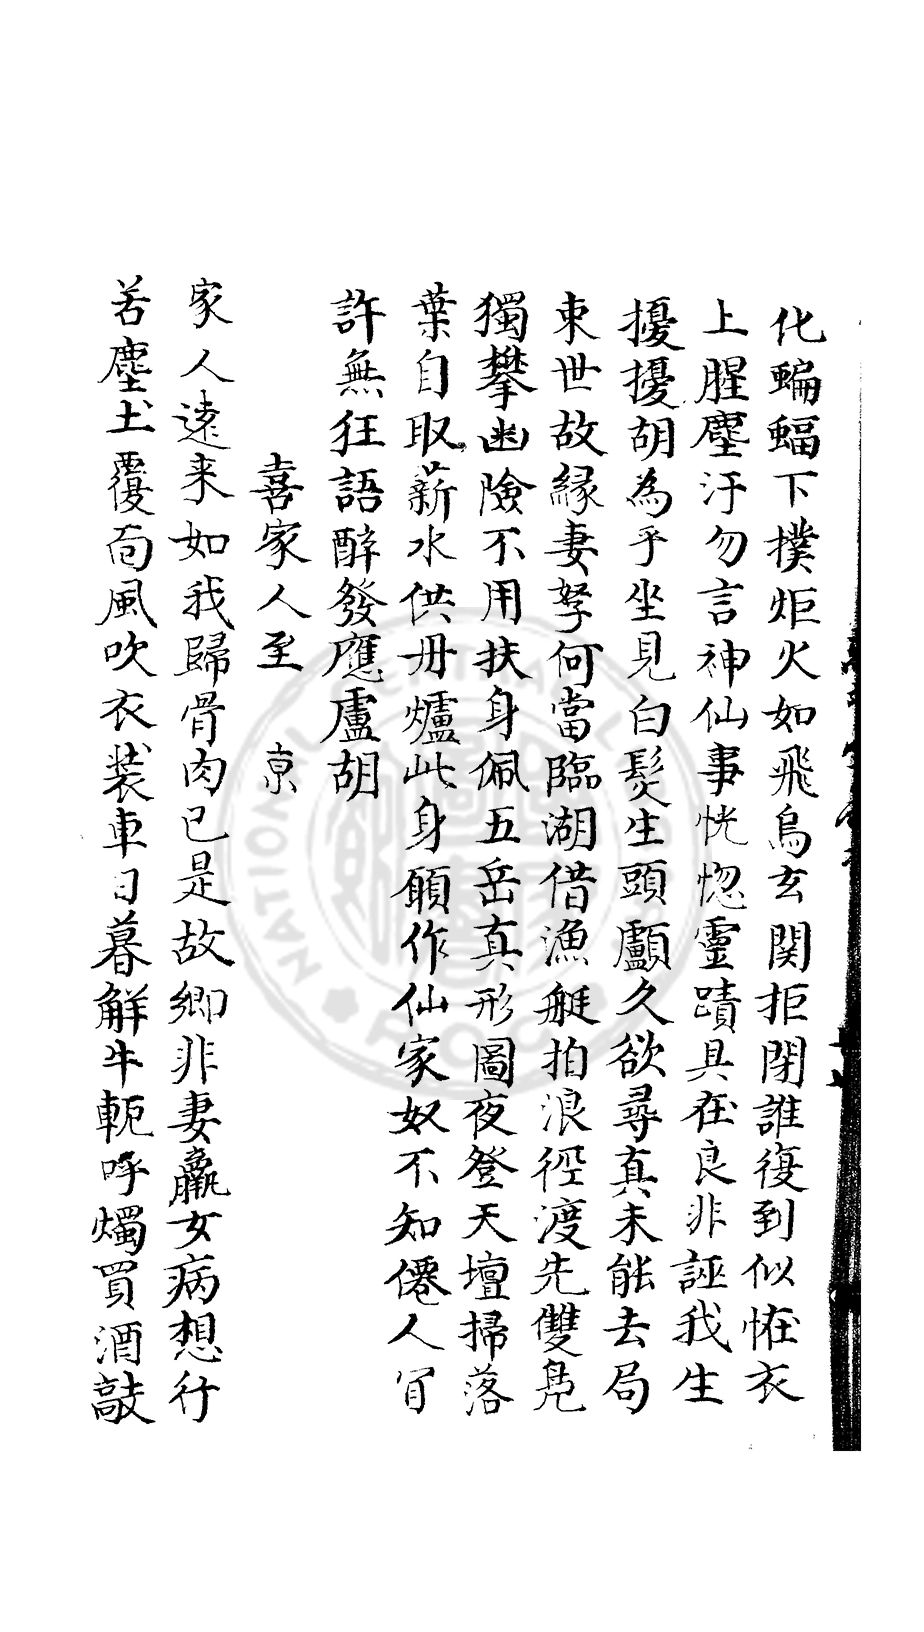 化蝙蝠下撲炬火如飛烏玄関拒閉誰復到似恠衣
上腥塵汙勿言神仙事恍惚靈蹟具在良非誣我生
擾擾胡為乎坐見白髮生頭顱久欲尋真未能去局
束世故縁妻孥何當臨湖借漁艇拍浪徑渡先雙鳧
獨攀幽險不用扶身佩五岳真形圖夜登天壇掃落
葉自取薪水供丹爐此身願作仙家奴不知僊人肎
許無狂語醉發應盧胡
喜家人至 京
家人遠来如我歸骨肉已是故鄉非妻羸女病想行
苦塵土覆面風吹衣裝車日暮解牛軛呼燭買酒敲
NATIONAL CENTRAL LIBRARY R.O.C.